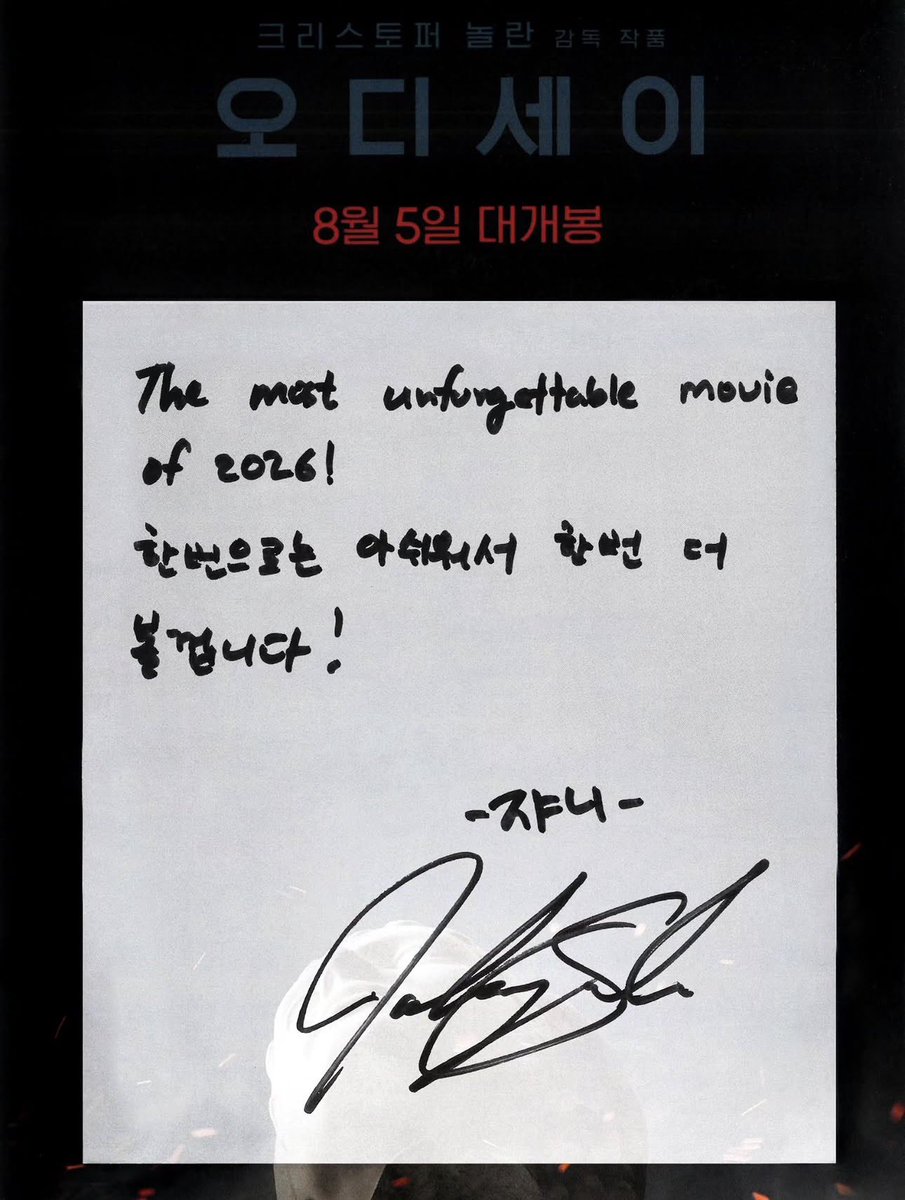 크리스토퍼 놀란 감독 작품
오디세이
8월 5일 대개봉
The most unforgettable movie
of 2026!
한번으로는 아쉬워서 한번 더
볼겁니다!
-쟈니-